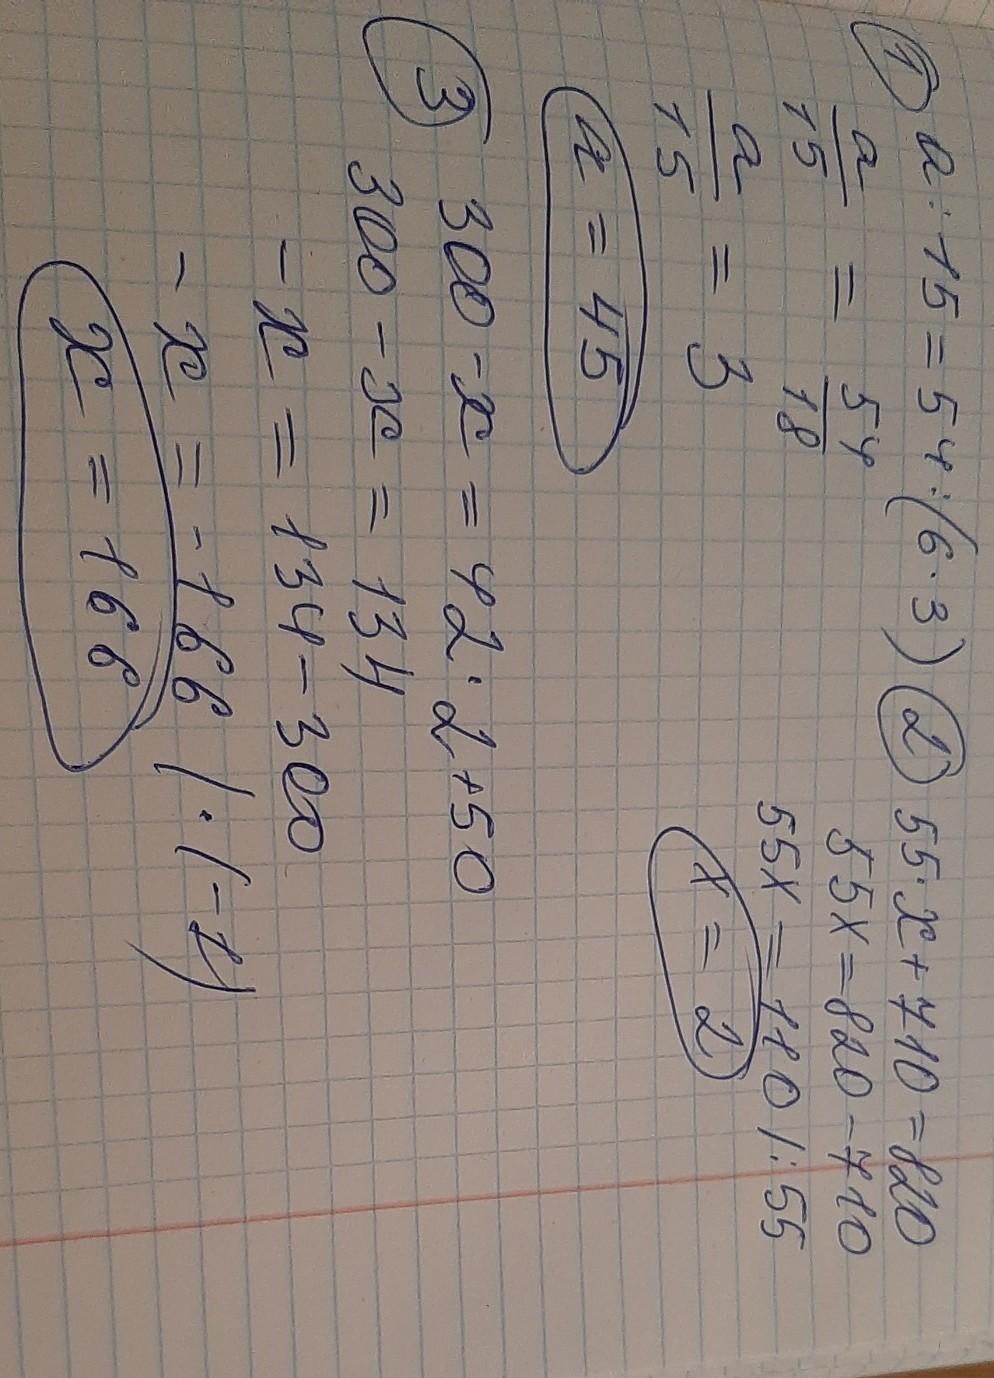 ① a : 15 = 54 : (6 · 3)
a/15 = 54/18
a/15 = 3
a = 45
② 55 · x + 710 = 820
55x = 820 - 710
55x = 110 | : 55
x = 2
③ 300 - x = 42 · 2 + 50
300 - x = 134
- x = 134 - 300
- x = - 166 | · (-1)
x = 166